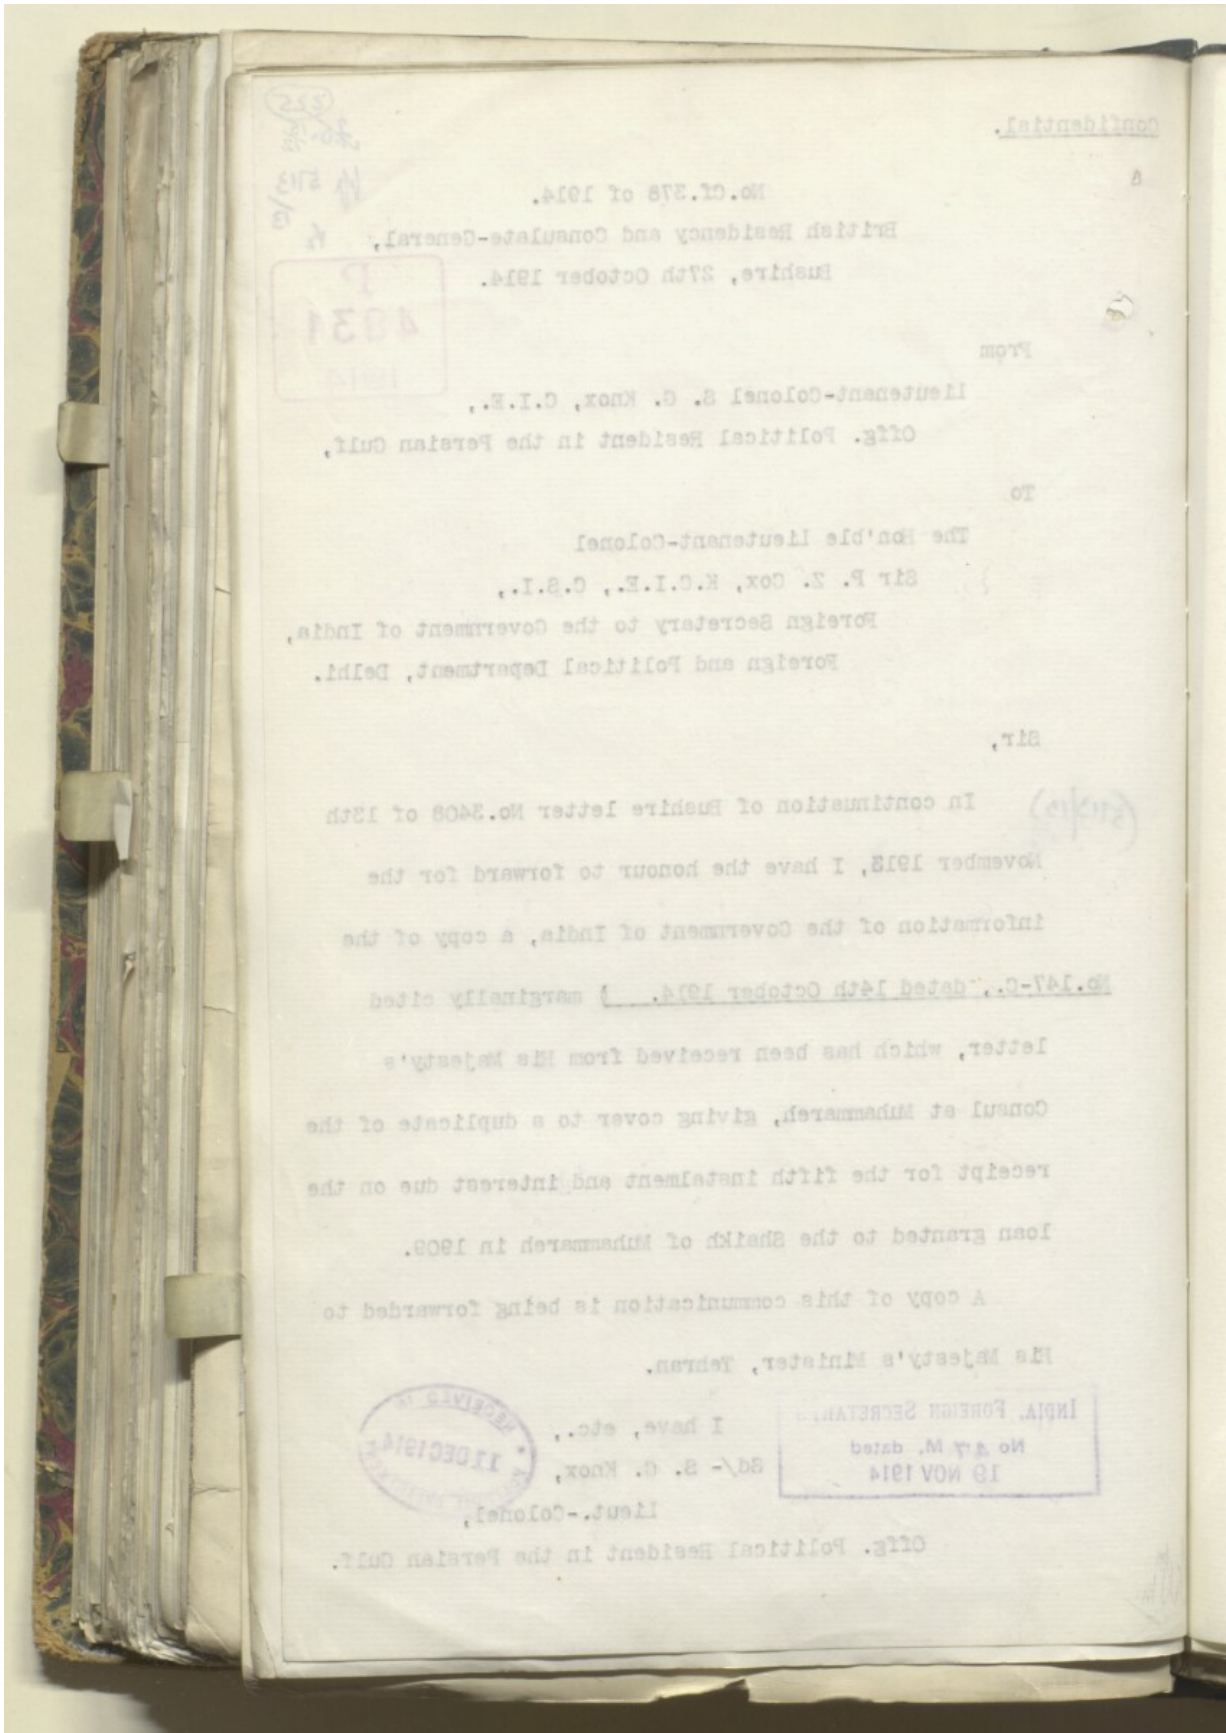 Confidential.
No.Cf.378 of 1914.
British Residency and Consulate-General,
Bushire, 27th October 1914.
P
4831
1914
From
Lieutenant-Colonel S. G. Knox, C.I.E.,
Offg. Political Resident in the Persian Gulf,
To
The Hon'ble Lieutenant-Colonel
Sir P. Z. Cox, K.C.I.E., C.S.I.,
Foreign Secretary to the Government of India,
Foreign and Political Department, Delhi.
Sir,
In continuation of Bushire letter No.3408 of 13th
November 1913, I have the honour to forward for the
information of the Government of India, a copy of the
No.147-C., dated 14th October 1914. ) marginally cited
letter, which has been received from His Majesty's
Consul at Muhammareh, giving cover to a duplicate of the
receipt for the fifth instalment and interest due on the
loan granted to the Shaikh of Muhammareh in 1909.
A copy of this communication is being forwarded to
His Majesty's Minister, Tehran.
I have, etc.,
Sd/- S. G. Knox,
Lieut.-Colonel,
Offg. Political Resident in the Persian Gulf.
INDIA, FOREIGN SECRETARY
No 47 M. dated
19 NOV 1914
RECEIVED
11DEC1914